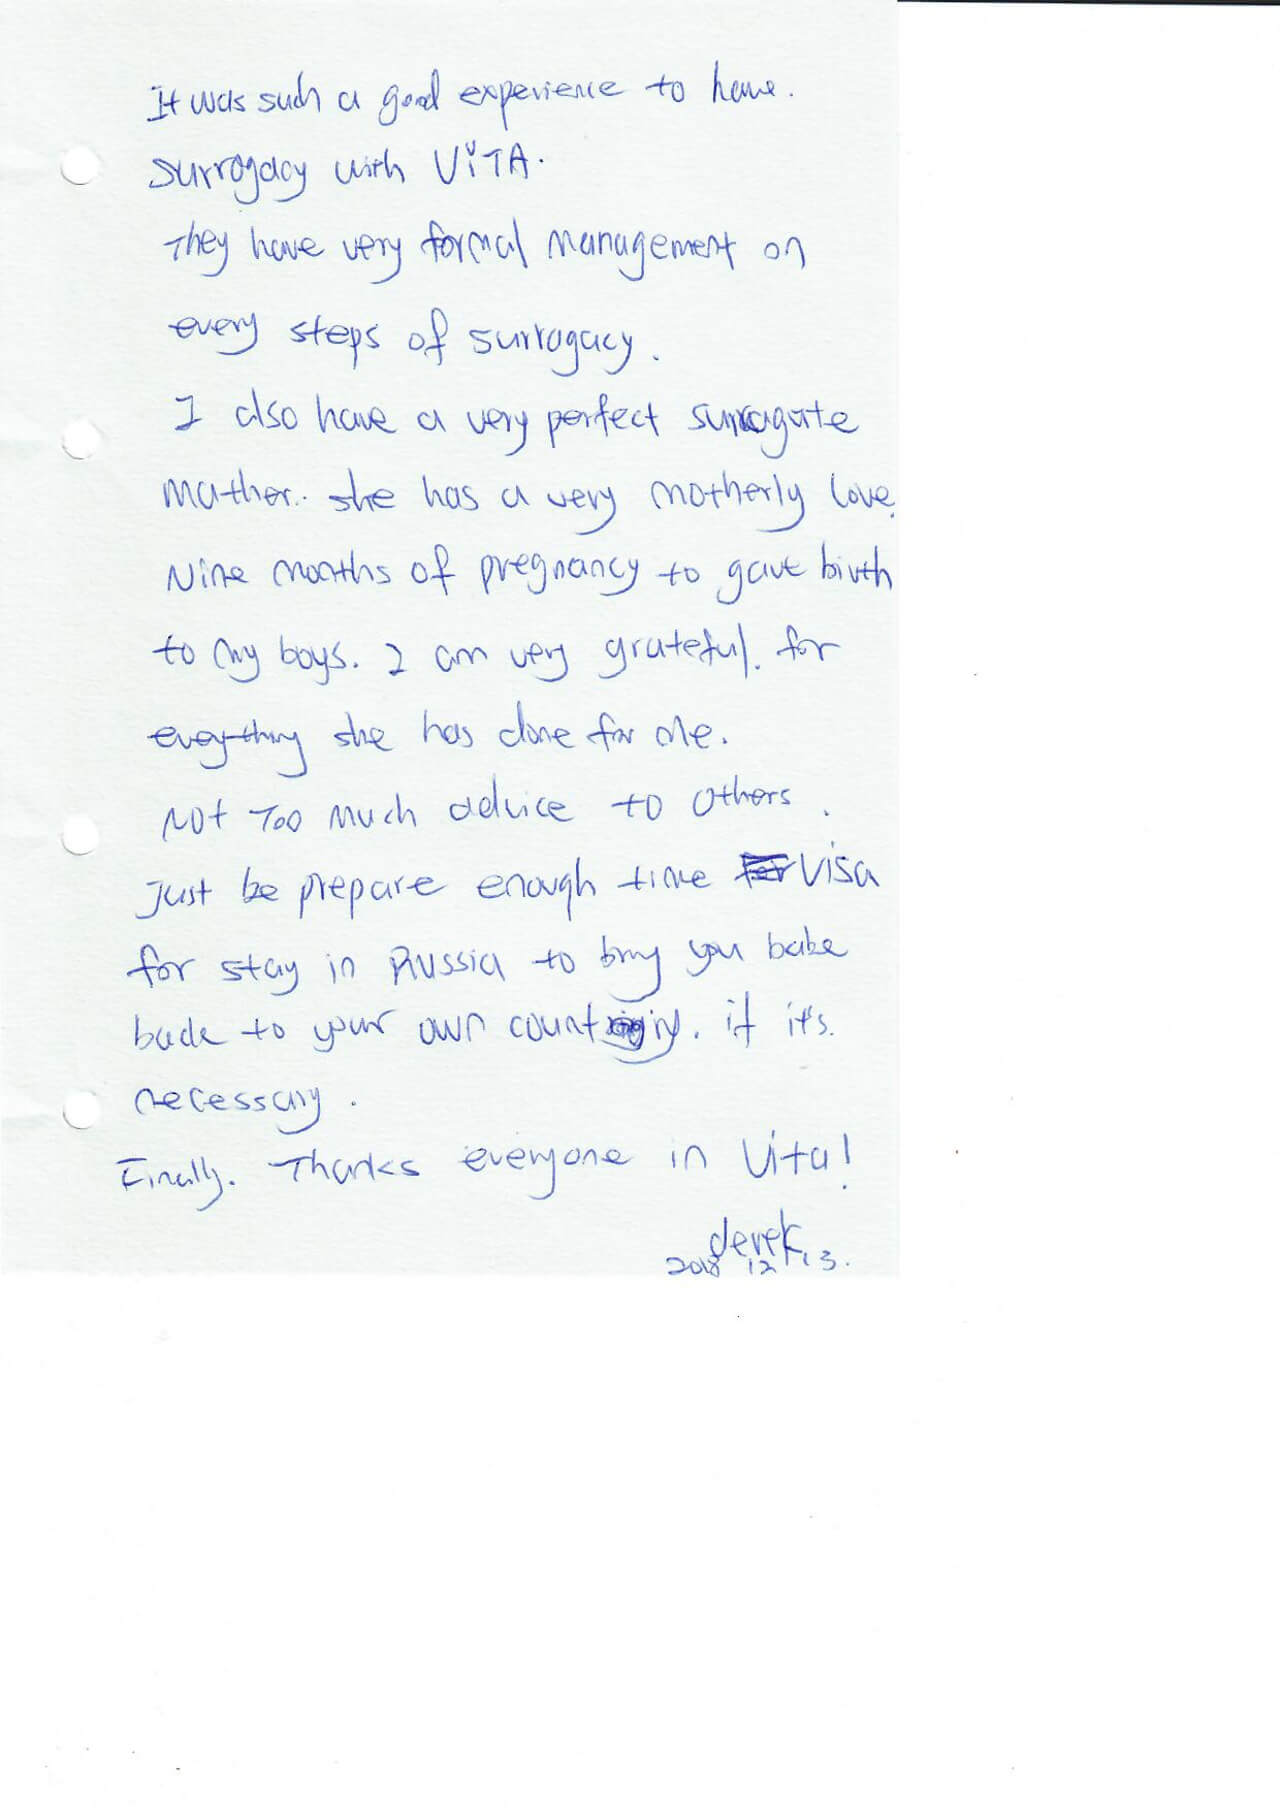 It was such a good experience to have.
surrogacy with VITA.
They have very formal management on
every steps of surrogacy.
I also have a very perfect surragate
mather. she has a very motherly love.
Nine months of pregnancy to gave birth
to my boys. I am very grateful. for
everything she has done for me.
Not Too much advice to others.
Just be prepare enough time visa
for stay in Russia to bring you babe
back to your own country. if it's.
necessary.
Finally. Thanks everyone in Vita!
derek
2018 12 13.